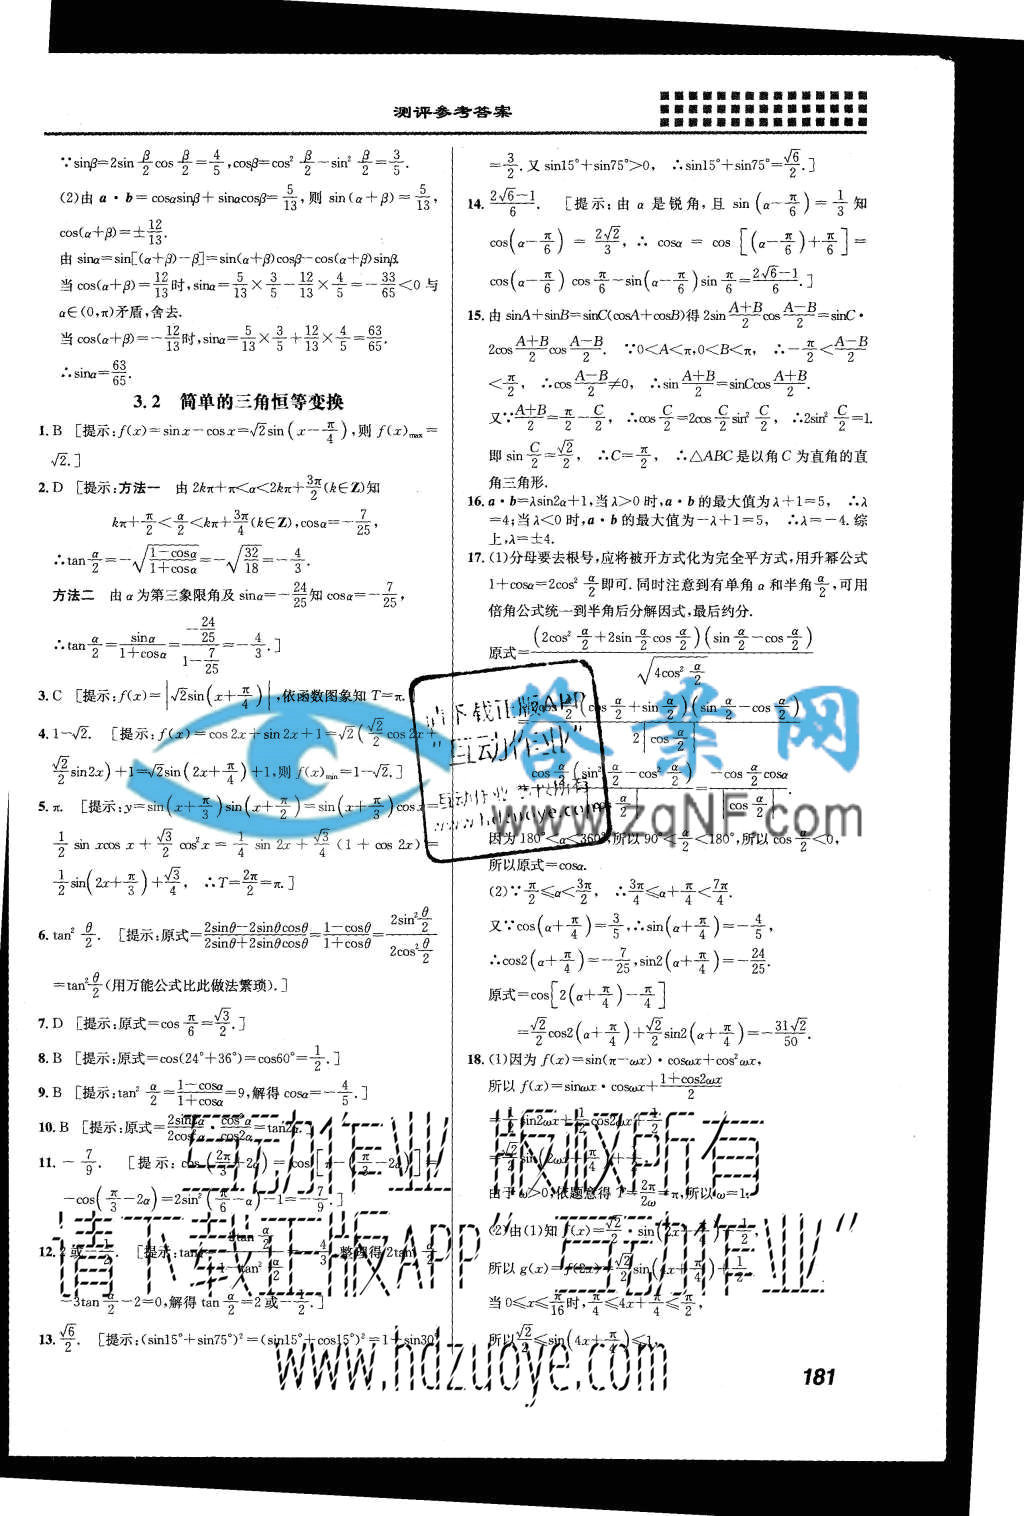 测评参考答案
∵sinβ=2sin β/2 cos β/2=4/5,cosβ=cos² β/2-sin² β/2=3/5.
(2)由 a·b=cosαsinβ+sinαcosβ=5/13,则 sin(α+β)=5/13,
cos(α+β)=±12/13.
由 sinα=sin[(α+β)-β]=sin(α+β)cosβ-cos(α+β)sinβ.
当 cos(α+β)=12/13时,sinα=5/13×3/5-12/13×4/5=-33/65<0 与
α∈(0,π)矛盾,舍去.
当 cos(α+β)=-12/13时,sinα=5/13×3/5+12/13×4/5=63/65.
∴sinα=63/65.
3.2 简单的三角恒等变换
1.B [提示:f(x)=sinx-cosx=√2sin(x-π/4),则 f(x)max=
√2.]
2.D [提示:方法一 由 2kπ+π<α<2kπ+3π/2(k∈Z)知
kπ+π/2<α/2<kπ+3π/4(k∈Z),cosα=-7/25,
∴tan α/2=-√((1-cosα)/(1+cosα))=-√(32/18)=-4/3.
方法二 由 α 为第三象限角及 sinα=-24/25知 cosα=-7/25,
∴tan α/2=sinα/(1+cosα)=(-24/25)/(1-7/25)=-4/3.]
3.C [提示:f(x)=|√2sin(x+π/4)|,依函数图象知 T=π.
4.1-√2. [提示:f(x)=cos2x+sin2x+1=√2(√2/2 cos2x+
√2/2 sin2x)+1=√2sin(2x+π/4)+1,则 f(x)min=1-√2.]
5.π. [提示:y=sin(x+π/3)sin(x+π/2)=sin(x+π/3)cosx=
1/2 sinxcosx+√3/2 cos²x=1/4 sin2x+√3/4(1+cos2x)=
1/2 sin(2x+π/3)+√3/4, ∴T=2π/2=π.]
6.tan² θ/2. [提示:原式=(2sinθ-2sinθcosθ)/(2sinθ+2sinθcosθ)=(1-cosθ)/(1+cosθ)=(2sin² θ/2)/(2cos² θ/2)
=tan² θ/2(用万能公式比此做法繁琐).]
7.D [提示:原式=cos π/6=√3/2.]
8.B [提示:原式=cos(24°+36°)=cos60°=1/2.]
9.B [提示:tan² α/2=(1-cosα)/(1+cosα)=9,解得 cosα=-4/5.]
10.B [提示:原式=2sin2α/2cos²α·cos²α/cos2α=tan2α.
11.-7/9. [提示:cos(2π/3+2α)=cos[π-(π/3-2α)]=
-cos(π/3-2α)=2sin²(π/6-α)-1=-7/9.]
12.2或-1/2. [提示:tanα=2tan α/2/(1-tan² α/2)=-4/3,整理得2tan² α/2
-3tan α/2-2=0,解得 tan α/2=2或-1/2.]
13.√6/2. [提示:(sin15°+sin75°)²=(sin15°+cos15°)²=1+sin30°
=3/2.又 sin15°+sin75°>0, ∴sin15°+sin75°=√6/2.]
14.(2√6-1)/6. [提示:由 α 是锐角,且 sin(α-π/6)=1/3 知
cos(α-π/6)=2√2/3,∴cosα=cos[(α-π/6)+π/6]=
cos(α-π/6)cos π/6-sin(α-π/6)sin π/6=(2√6-1)/6.]
15.由 sinA+sinB=sinC(cosA+cosB)得 2sin (A+B)/2 cos (A-B)/2=sinC·
2cos (A+B)/2 cos (A-B)/2. ∵0<A<π,0<B<π, ∴-π/2<(A-B)/2
<π/2, ∴cos (A-B)/2≠0, ∴sin (A+B)/2=sinCcos (A+B)/2.
又∵(A+B)/2=π/2-C/2, ∴cos C/2=2cos C/2 sin² C/2, ∴2sin² C/2=1.
即 sin C/2=√2/2, ∴C=π/2, ∴△ABC 是以角 C 为直角的直
角三角形.
16.a·b=λsin2α+1,当 λ>0 时,a·b 的最大值为 λ+1=5, ∴λ
=4;当 λ<0 时,a·b 的最大值为-λ+1=5, ∴λ=-4.综
上,λ=±4.
17.(1)分母要去根号,应将被开方式化为完全平方式,用升幂公式
1+cosα=2cos² α/2即可.同时注意到有单角 α 和半角 α/2,可用
倍角公式统一到半角后分解因式,最后约分.
原式=(2cos² α/2+2sin α/2 cos α/2)(sin α/2-cos α/2)/√(4cos² α/2)
=2cos α/2(cos α/2+sin α/2)(sin α/2-cos α/2)/2|cos α/2|
cos α/2(sin² α/2-cos² α/2) -cos α/2 cosα/|cos α/2|.
因为 180°<α<360°,所以 90°<α/2<180°,所以 cos α/2<0,
所以原式=cosα.
(2)∵π/2≤α<3π/2, ∴3π/4≤α+π/4<7π/4.
又∵cos(α+π/4)=3/5,∴sin(α+π/4)=-4/5,
∴cos2(α+π/4)=-7/25,sin2(α+π/4)=-24/25.
原式=cos[2(α+π/4)-π/4]
=√2/2 cos2(α+π/4)+√2/2 sin2(α+π/4)=-31√2/50.
18.(1)因为 f(x)=sin(π-ωx)·cosωx+cos²ωx,
所以 f(x)=sinωx·cosωx+(1+cos2ωx)/2
=1/2 sin2ωx+1/2 cos2ωx+1/2
=√2/2 sin(2ωx+π/4)+1/2.
由于 ω>0,依题意得 T=2π/2ω=π,所以 ω=1.
(2)由(1)知 f(x)=√2/2·sin(2x+π/4)+1/2,
所以 g(x)=f(2x)=√2/2 sin(4x+π/4)+1/2
当 0≤x≤π/16时,π/4≤4x+π/4≤π/2,
所以√2/2≤sin(4x+π/4)≤1,
181
答案网
www.zqNF.com
请下载正版APP
"互动作业"
互动作业 版权所有
www.hdzuoye.com
互动作业 版权所有
请下载正版APP"互动作业"
www.hdzuoye.com